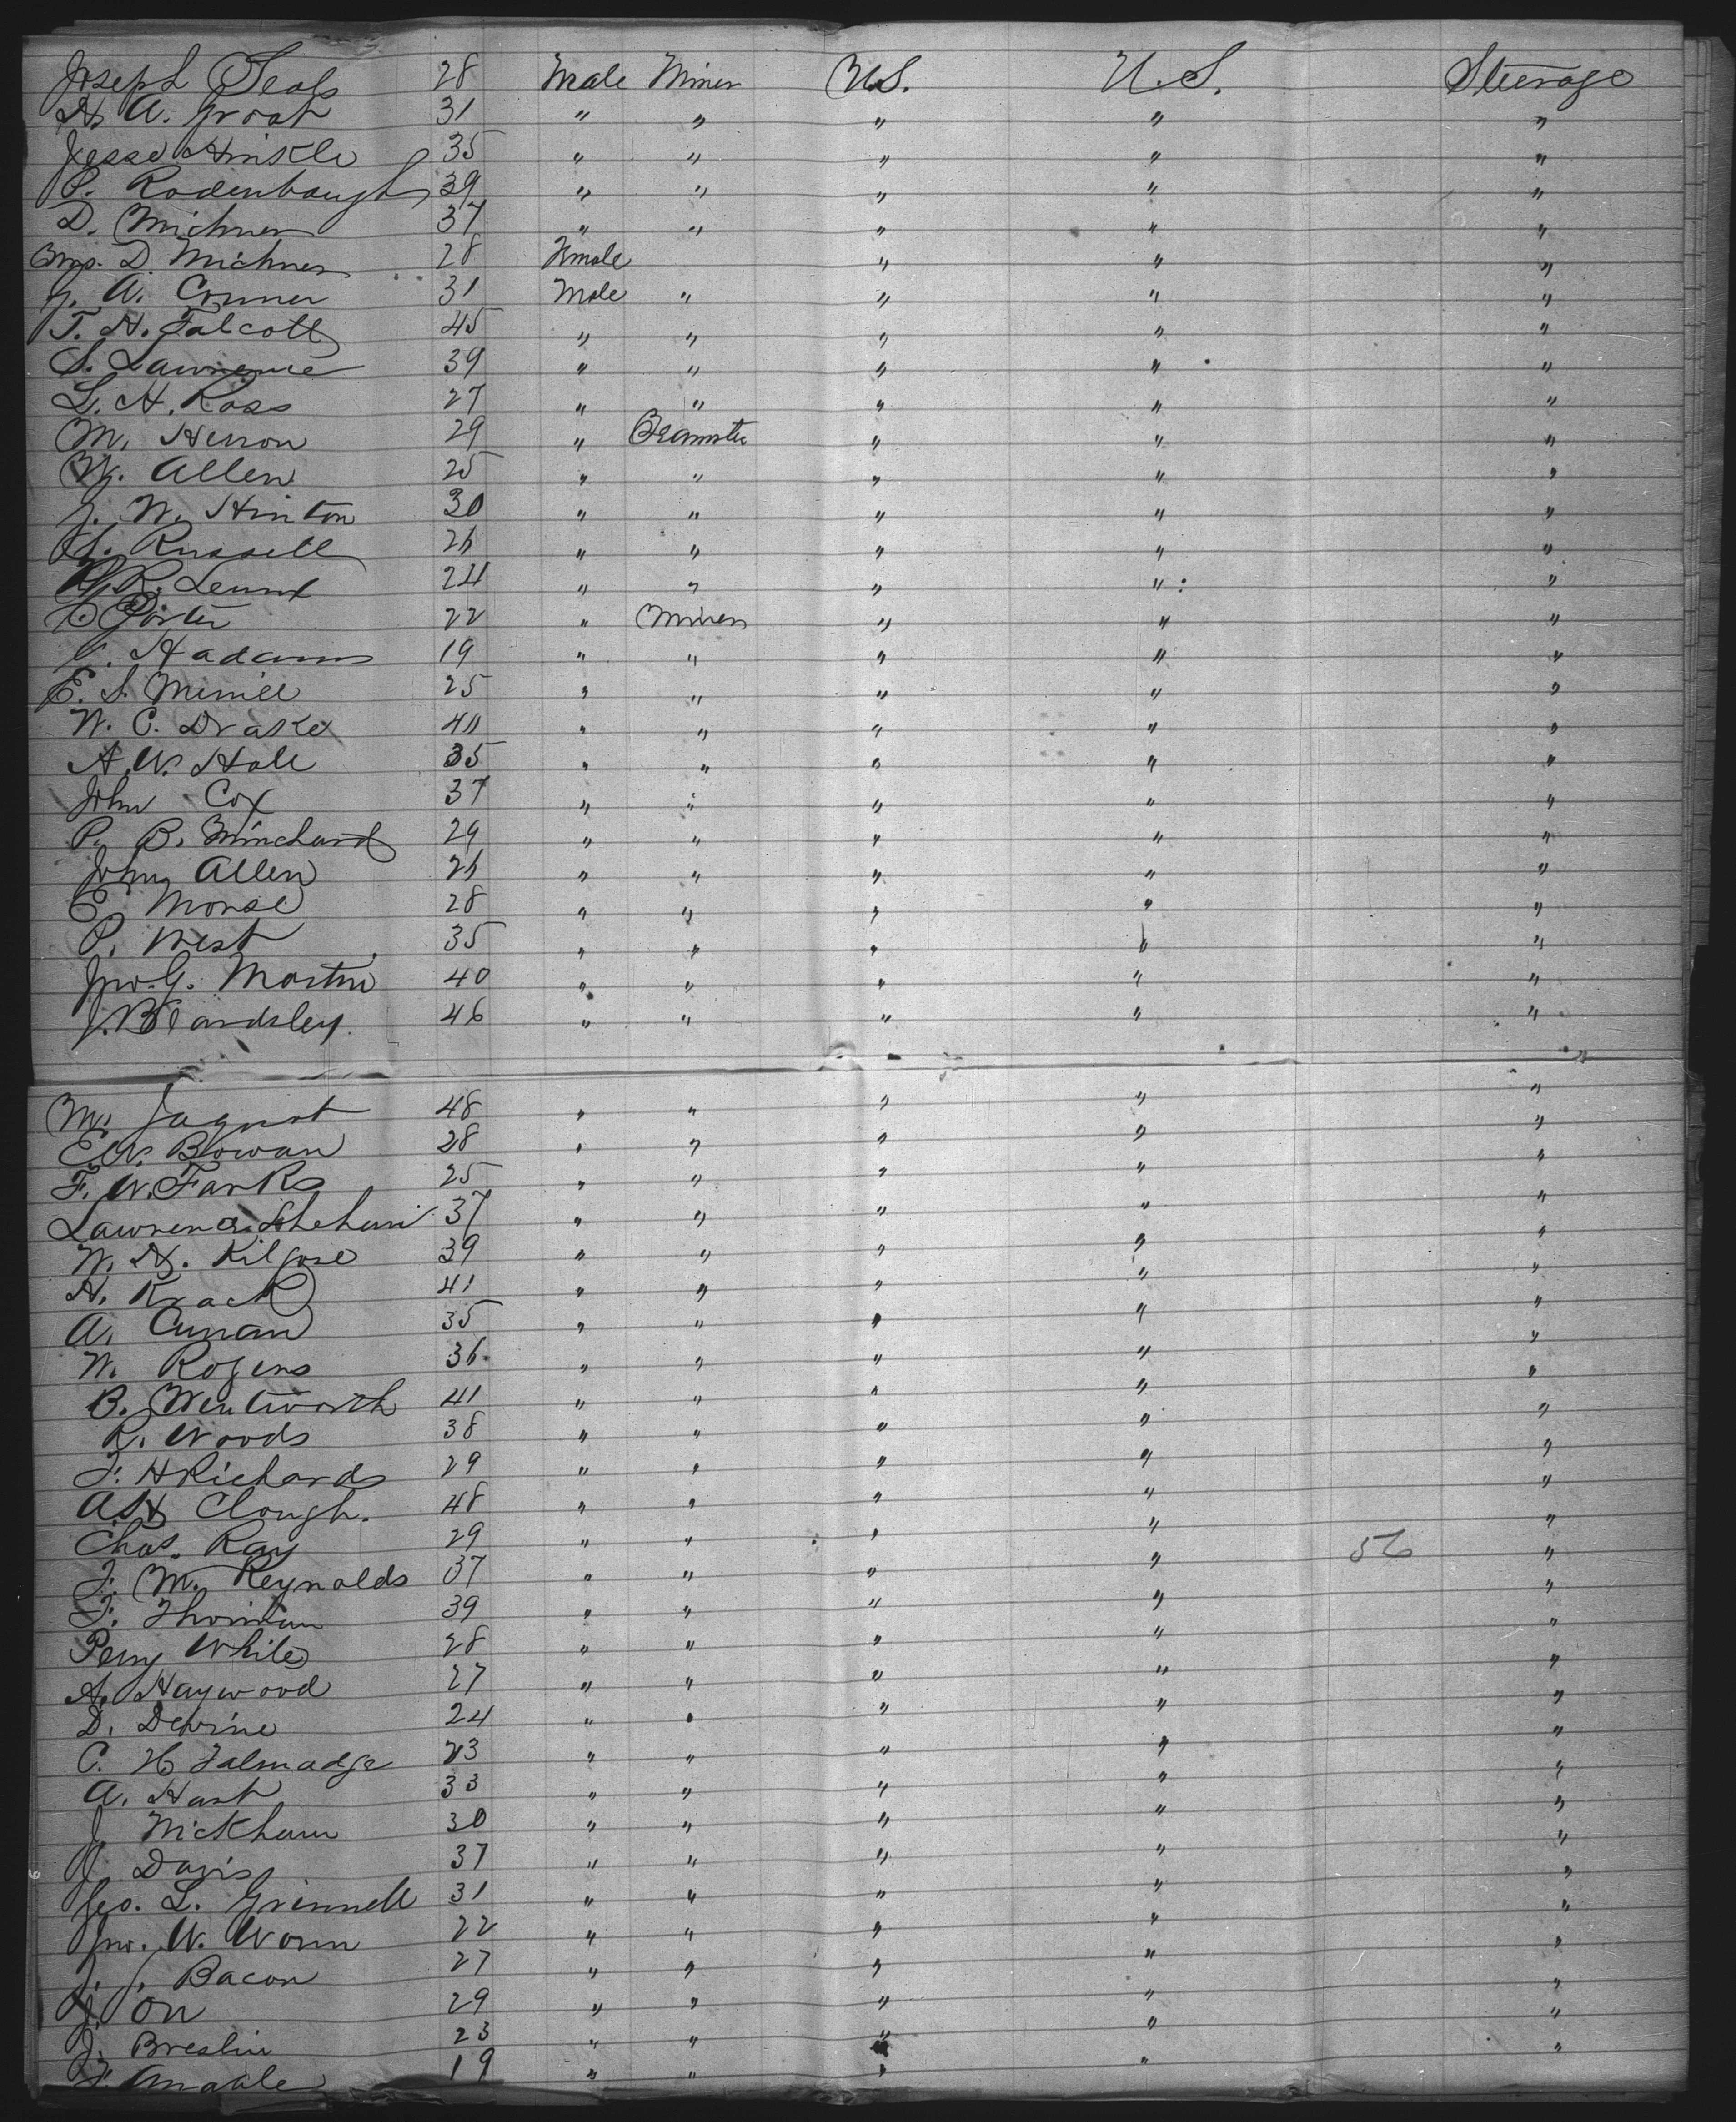 Joseph Seals 28 Male Miner U.S. U.S. Steerage
H. A. Groat 31 " " " " "
Jesse Hinkle 35 " " " " "
P. Rodenbaugh 39 " " " " "
D. Michner 37 " " " " "
Mrs. D. Michner 28 Female " " "
J. A. Conner 31 Male " " " "
T. H. Talcott 45 " " " " "
S. Lawrence 39 " " " " "
L. H. Ross 27 " " " " "
M. Herron 29 " Teamster " " "
W. Allen 25 " " " " "
J. W. Hinton 30 " " " " "
S. Russell 26 " " " " "
24 " " " " "
Porter 22 " Miner " " "
Hadams 19 " " " " "
E. S. Merrill 25 " " " " "
W. C. Drake 40 " " " " "
A. W. Hale 35 " " " " "
John Cox 37 " " " " "
P. B. Minchard 29 " " " " "
John Allen 26 " " " " "
E. Morse 28 " " " " "
P. West 35 " " " " "
Jno. G. Martin 40 " " " " "
J. Beardsley. 46 " " " " "
"
M. 48 " " " " "
E. W. Bowan 28 " " " " "
F. W. Farks 25 " " " " "
Lawrence 37 " " " " "
W. H. Kilgore 39 " " " " "
H. Krack 41 " " " " "
A. Curran 35 " " " " "
W. Rogers 36 " " " " "
B. Wentworth 41 " " " " "
R. Woods 38 " " " " "
F. H Richards 29 " " " " "
A. H. Clough. 48 " " " " "
Chas. Ray 29 " " " " "
F. M. Reynolds 37 " " " 56 "
F. 39 " " " " "
Perry White 28 " " " " "
A. Haywood 27 " " " " "
D. Devine 24 " " " " "
C. H Talmadge 23 " " " " "
A. Hart 33 " " " " "
J. Wickham 30 " " " " "
J. Davis 37 " " " " "
Geo. L. Grinnell 31 " " " " "
Jno. W. Worm 22 " " " " "
J. J. Bacon 27 " " " " "
J. Orr 29 " " " " "
J. Breslin 23 " " " " "
19 " " " "